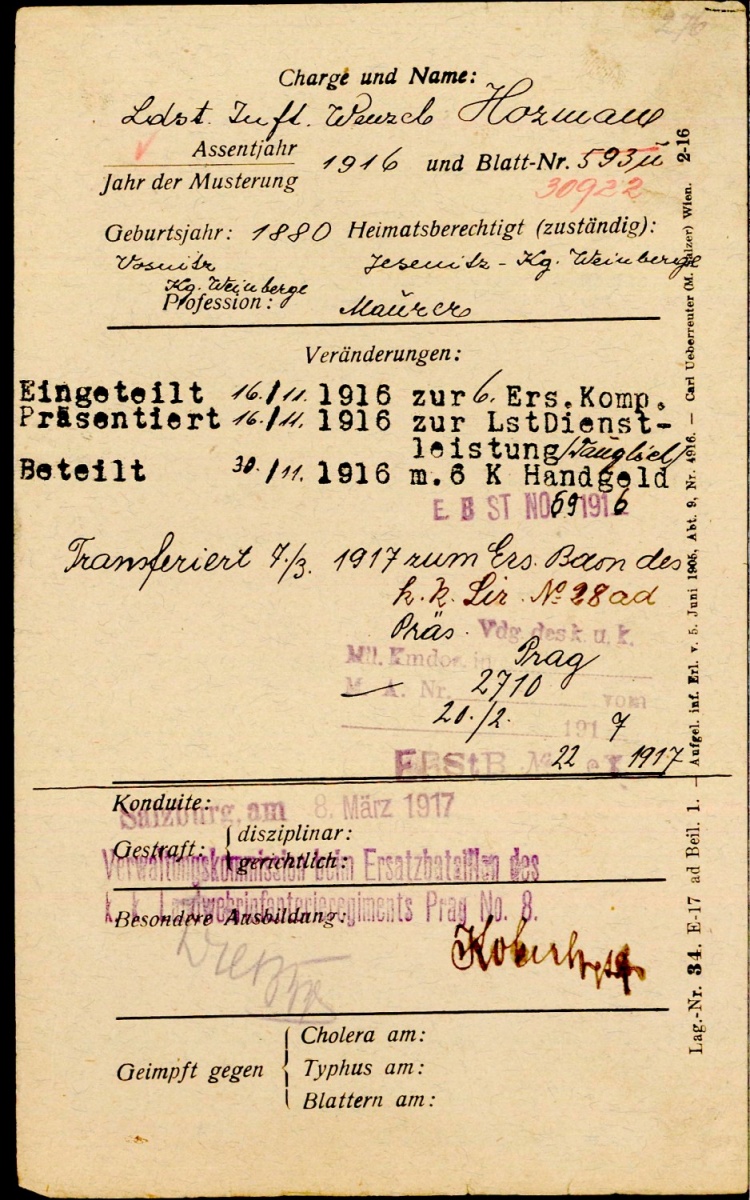 276
Charge und Name:
Ldst. Inft. Wenzel Hozman
Assentjahr
Jahr der Musterung
1916 und Blatt-Nr. 593
30922
Geburtsjahr: 1880 Heimatsberechtigt (zuständig):
Jesenitz - Kg. Weinberge
Kg. Weinberge
Profession: Maurer
Veränderungen:
Eingeteilt 16./11. 1916 zur 6. Ers.Komp.
Präsentiert 16./11. 1916 zur LstDienst-
leistung /tauglich/
Beteilt 30./11. 1916 m.6 K Handgeld
E. B ST NO 69 1916
Transferiert 7./3. 1917 zum Ers. Baon des
k. k. Lir. No 28 ad
Präs. Vdg. des k. u. k.
Mil. Kmdos. in Prag
M. A. Nr. 2710 vom
20./2. 1917
22 1917
Konduite:
Salzburg, am 8. März 1917
Gestraft: disziplinar:
gerichtlich:
Verwaltungskommission beim Ersatzbataillon des
k. k. Landwehrinfanterieregiments Prag No. 8.
Besondere Ausbildung:
Geimpft gegen
Cholera am:
Typhus am:
Blattern am:
Lag.-Nr. 34. E-17 ad Beil. 1. — Aufgel. inf. Erl. v. 5. Juni 1906, Abt. 9, Nr. 4916. — Carl Ueberreuter (M. Salzer) Wien. 2-16